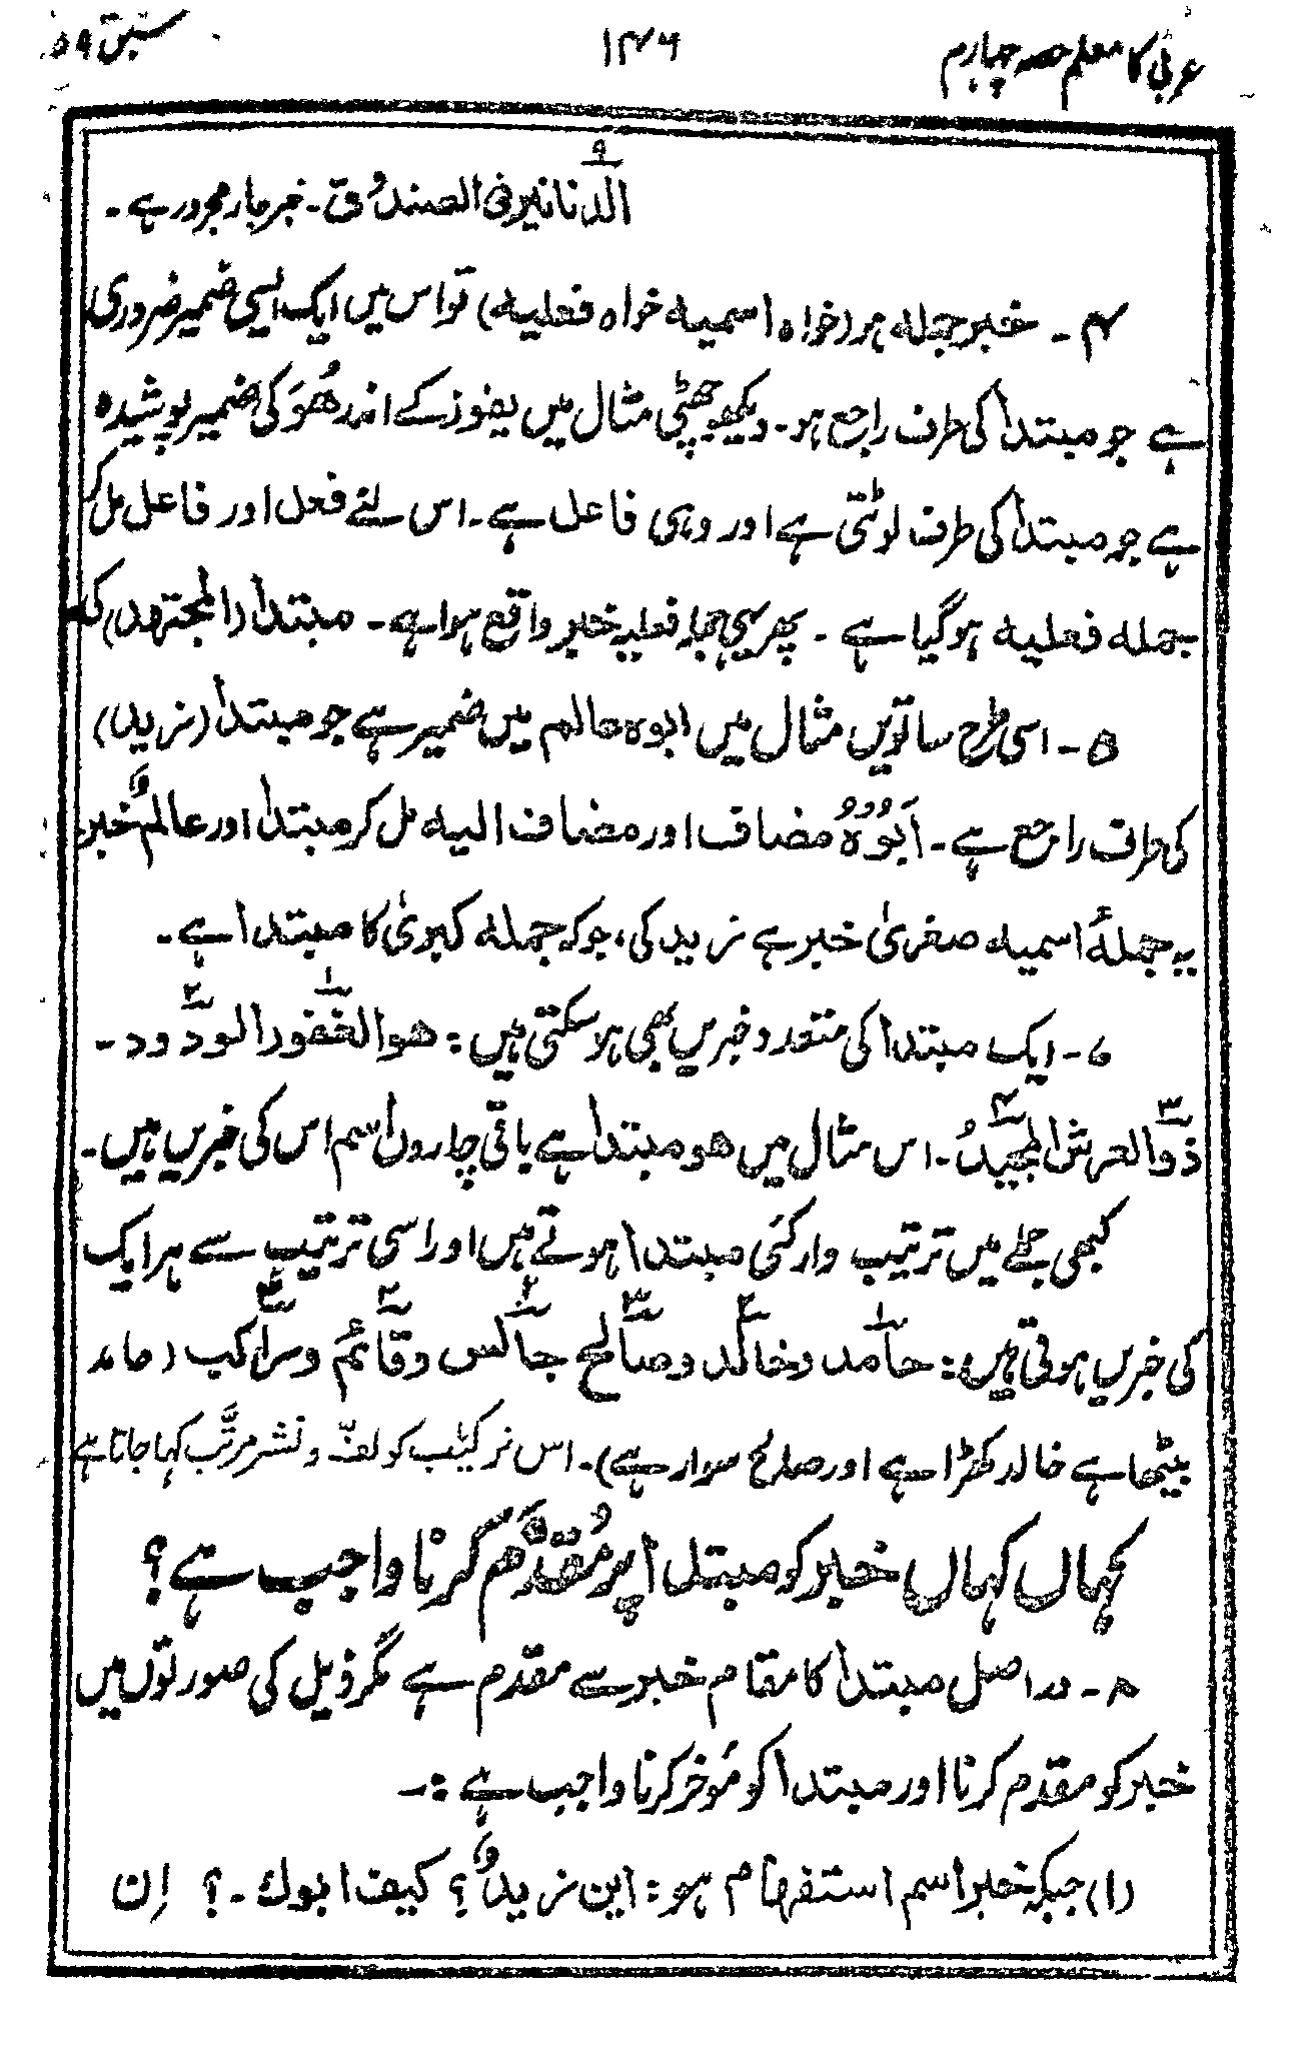 عربی کا معلم حصہ چہارم
۱۴۶
سبق ۵۹
۹
الدنانیر فی الصندُوق۔ خبر جار مجرور ہے۔
۴۔ خبر جملہ ہو (خواہ اسمیہ خواہ فعلیہ) تو اس میں ایک ایسی ضمیر ضروری
ہے جو مبتدأ کی طرف راجع ہو۔ دیکھو چھٹی مثال میں یفوز کے اندر ھُوَ کی ضمیر پوشیدہ
ہے جو مبتدأ کی طرف لوٹتی ہے اور وہی فاعل ہے۔ اس لئے فعل اور فاعل مل کر
جملہ فعلیہ ہوگیا ہے۔ پھر یہی جملہ فعلیہ خبر واقع ہوا ہے۔ مبتدأ (المجتھد) کی
۵۔ اسی طرح ساتویں مثال میں ابوہ عالم میں ضمیر ہے جو مبتدأ (زید)
کی طرف راجع ہے۔ اَبُوْہُ مضاف اور مضاف الیہ مل کر مبتدأ اور عالمٌ خبر
یہ جملۂ اسمیہ صغریٰ خبر ہے زید کی، جو کہ جملہ کبریٰ کا مبتدا ہے۔
۶۔ ایک مبتدأ کی متعدد خبریں بھی ہو سکتی ہیں: ھو الغفور۱ الودود۲۔
ذوالعرش۳ المجیدُ۴۔ اس مثال میں ھو مبتدأ ہے باقی چاروں اسم اس کی خبریں ہیں۔
کبھی جملے میں ترتیب وار کئی مبتدا ہوتے ہیں اور اسی ترتیب سے ہر ایک
کی خبریں ہوتی ہیں: حامد۱ وخالد۲ وصالح۳ جالس۱ وقائم۲ وراکب۳ (حامد
بیٹھا ہے خالد کھڑا ہے اور صالح سوار ہے)۔ اس ترکیب کو لفّ و نشر مرتَّب کہا جاتا ہے
کہاں کہاں خبر کو مبتدا پر مُقَدَّم کرنا واجب ہے؟
۸۔ دراصل مبتدأ کا مقام خبر سے مقدم ہے مگر ذیل کی صورتوں میں
خبر کو مقدم کرنا اور مبتدا کو مؤخر کرنا واجب ہے:۔
(۱) جبکہ خبر اسم استفہام ہو: این زیدٌ؟ کیف ابوك۔؟ اِن